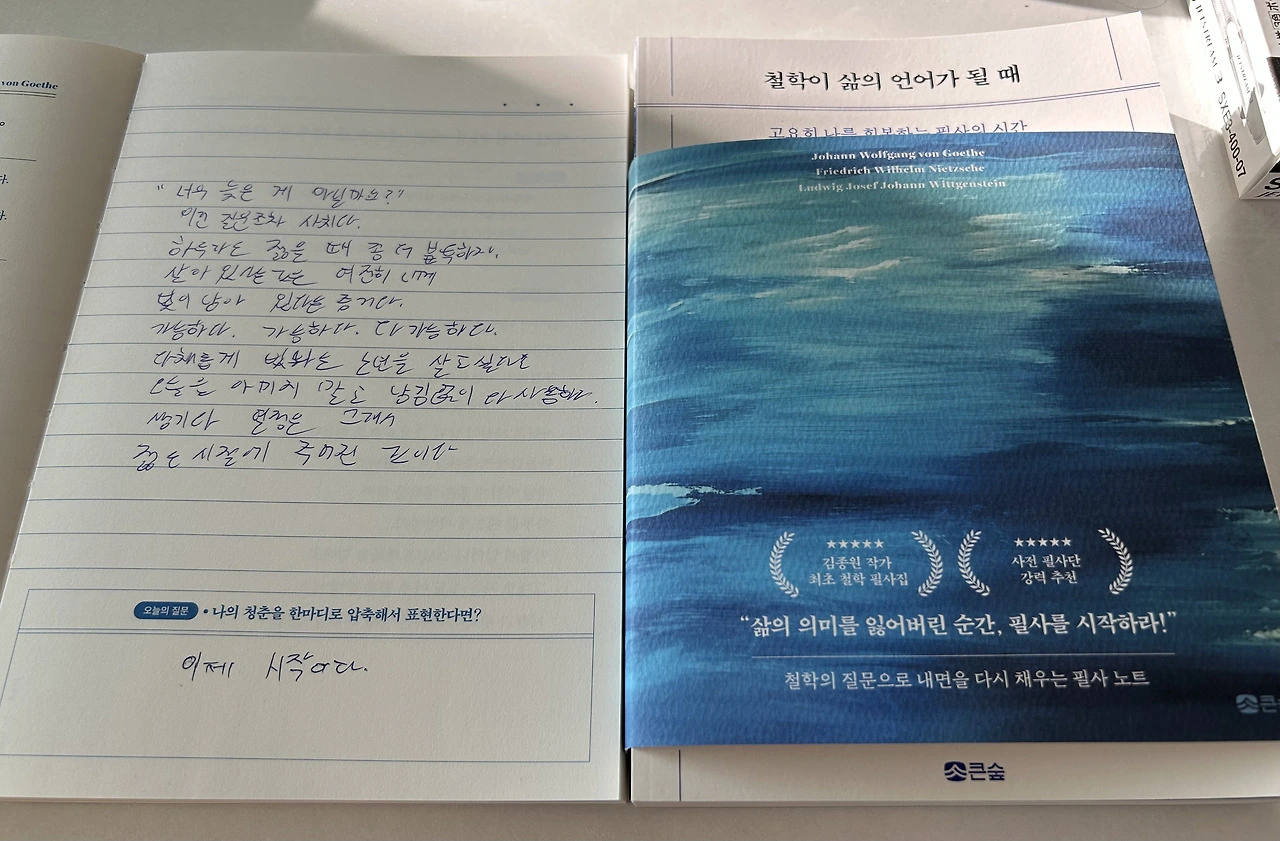 von Goethe
다.
다.
"너무 늦은 게 아닐까요?"
이런 질문조차 사치다.
하루라도 젊을 때 좀 더 분투하자.
살아 있다는 것은 여전히 나에게
빛이 남아 있다는 증거다.
가능하다. 가능하다. 다 가능하다.
다채롭게 빛나는 노년을 살고 싶다면
오늘을 아끼지 말고 남김없이 다 사용하라.
생기와 열정은 그래서
젊은 시절에 주어진 것이다
오늘의 질문 • 나의 청춘을 한마디로 압축해서 표현한다면?
이제 시작이다.
철학이 삶의 언어가 될 때
고요히 나를 회복하는 필사의 시간
Johann Wolfgang von Goethe
Friedrich Wilhelm Nietzsche
Ludwig Josef Johann Wittgenstein
김종원 작가
최초 철학 필사집
사전 필사단
강력 추천
"삶의 의미를 잃어버린 순간, 필사를 시작하라!"
철학의 질문으로 내면을 다시 채우는 필사 노트
큰
큰숲
JETSTREAM 3
SXE3-400-07